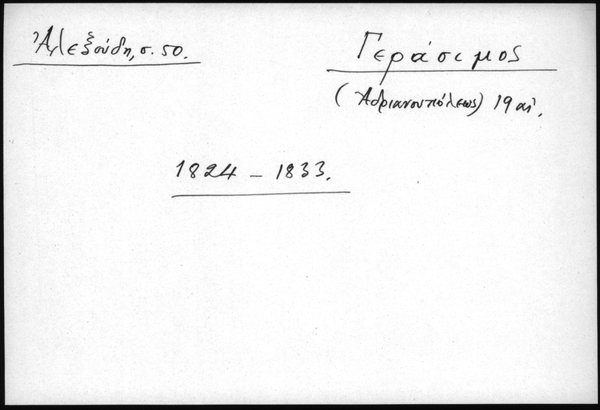 Ἀλεξούδη, σ. 50.
Γεράσιμος
(Ἀδριανουπόλεως) 19 αἰ.
1824 – 1833.